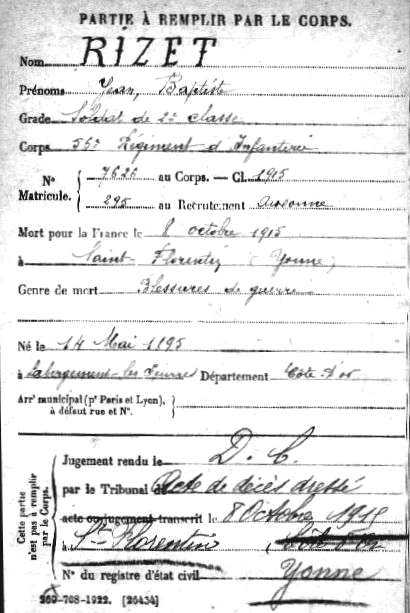 PARTIE À REMPLIR PAR LE CORPS.
Nom RIZET
Prénoms Jean, Baptiste
Grade Soldat de 2e classe
Corps 56e Régiment d'Infanterie
N° Matricule. { 7626 au Corps. — Cl. 1915
295 au Recrutement Auxonne
Mort pour la France le 8 octobre 1915
à Saint-Florentin (Yonne)
Genre de mort Blessures de guerre
Né le 14 Mai 1895
à Labergement-les-Seurre Département Côte d'or
Arr' municipal (p' Paris et Lyon), à défaut rue et N°.
Cette partie n'est pas à remplir par le Corps.
Jugement rendu le D. C.
par le Tribunal de Acte de décès dressé
acte ou jugement transcrit le 8 Octobre 1915
à St Florentin, Côte d'Or
N° du registre d'état civil Yonne
269-708-1922. [26434]